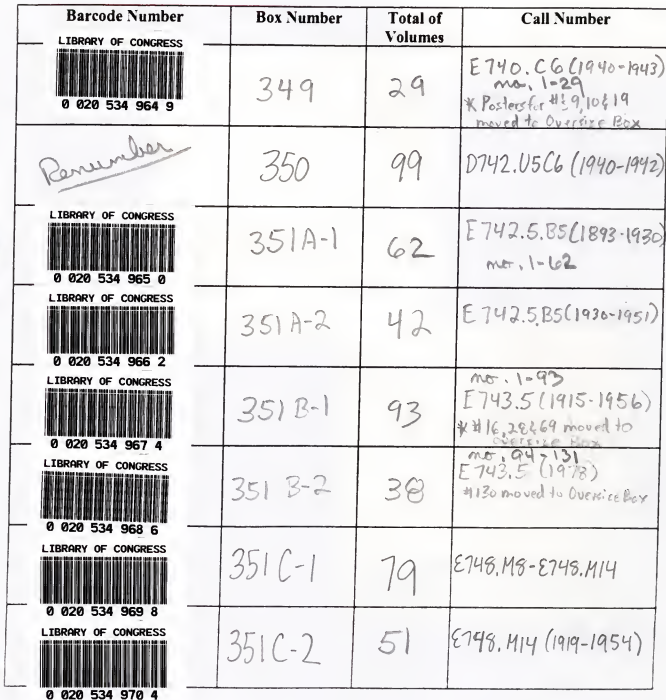 Barcode Number Box Number Total of Volumes Call Number
LIBRARY OF CONGRESS
0 020 534 964 9
349
29
E740.C6 (1940-1943)
no. 1-29
* Posters for #s 9, 10 & 19
moved to Oversize Box
Renumber
350
99
D742.U5C6 (1940-1942)
LIBRARY OF CONGRESS
0 020 534 965 0
351A-1
62
E742.5.B5(1893-1930)
no. 1-62
LIBRARY OF CONGRESS
0 020 534 966 2
351A-2
42
E742.5.B5(1930-1951)
LIBRARY OF CONGRESS
0 020 534 967 4
351 B-1
93
no. 1-93
E743.5 (1915-1956)
* #16, 28 & 69 moved to
oversize Box
LIBRARY OF CONGRESS
0 020 534 968 6
351 B-2
38
no. 94-131
E743.5 (1978)
#130 moved to Oversize Box
LIBRARY OF CONGRESS
0 020 534 969 8
351 C-1
79
E748.M8-E748.M14
LIBRARY OF CONGRESS
0 020 534 970 4
351C-2
51
E748.M14 (1919-1954)